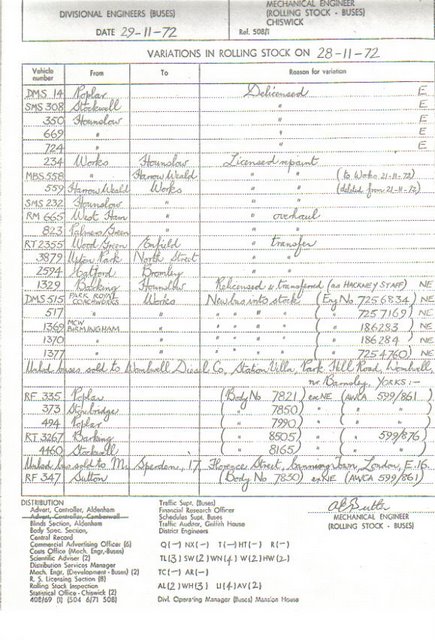 DIVISIONAL ENGINEERS (BUSES)
MECHANICAL ENGINEER
(ROLLING STOCK - BUSES)
CHISWICK
DATE 29-11-72
Ref. 508/1
VARIATIONS IN ROLLING STOCK ON 28-11-72
Vehicle number From To Reason for variation
DMS 14 Poplar Delicensed E
SMS 308 Stockwell " E
350 Hounslow " E
669 " " E
724 " " E
234 Works Hounslow Licensed repaint
MBS 558 " Harrow Weald " " (to Works 21-11-72)
559 Harrow Weald Works " " (delicd from 21-11-72)
SMS 232 Hounslow " " "
RM 665 West Ham " " overhaul
823 Palmers Green " " "
RT 2355 Wood Green Enfield " transfer
3879 Upton Park North Street " "
2594 Catford Bromley " "
1329 Barking Hounslow Relicensed & transferred (as HACKNEY STAFF) NE
DMS 515 PARK ROYAL COACHWORKS Works New bus into stock (Eng No 7256834) NE
517 " " " " " " ( " 7257169) NE
1369 MCW BIRMINGHAM " " " " " ( " 186283) NE
1370 " " " " " " ( " 186284) NE
1377 " " " " " " ( " 7254760) NE
Unlicd buses sold to Wombwell Diesel Co, Station Villa, Park Hill Road, Wombwell,
nr Barnsley, YORKS:-
RF 335 Poplar (Body No 7821) ex NE (AWCA 599/861)
373 Stonebridge ( " 7850) " ( " " )
494 Poplar ( " 7990) " ( " " )
RT 3267 Barking ( " 8505) " ( " 599/876)
4460 Stockwell ( " 8165) " ( " " )
Unlicd bus sold to Mr 17, Florence Street, Canning Town, London, E.16.
RF 347 Sutton (Body No 7830) ex NE (AWCA 599/861)
DISTRIBUTION
Advert, Controller, Aldenham
Advert, Controller, Camberwell
Blinds Section, Aldenham
Body Spec. Section,
Central Record
Commercial Advertising Officer (6)
Costs Office (Mech. Engr.-Buses)
Scientific Adviser (2)
Distribution Services Manager
Mech. Engr. (Development - Buses) (2)
R. S. Licensing Section (8)
Rolling Stock Inspection
Statistical Office - Chiswick (2)
408/69 (1) (504 6/71 508)
Traffic Supt. (Buses)
Financial Research Officer
Schedules Supt. Buses
Traffic Auditor, Griffith House
District Engineers
Q(-) NX(-) T(-) HT(-) R(-)
TL(3) SW(2) WN(4) W(2) HW(2)
TC(-) AR(-)
AL(2) WH(3) U(4) AV(2)
Divl. Operating Manager (Buses) Mansion House
MECHANICAL ENGINEER
(ROLLING STOCK - BUSES)